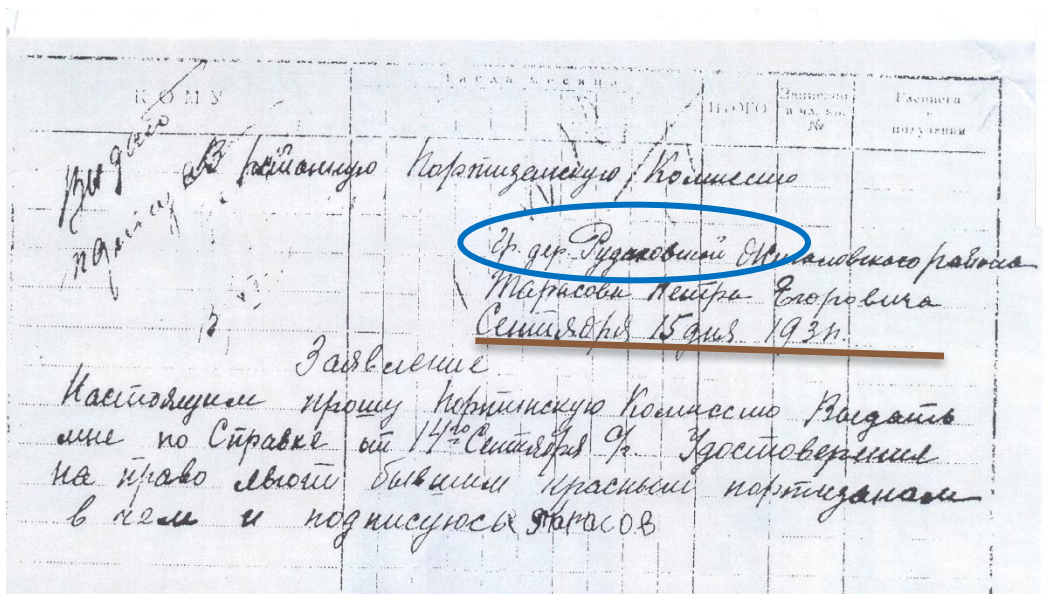 КОМУ
ИТОГО
Расписка
в
получении
В районную Портизанскую Комиссию
гр. дер. Рудаковской Жигаловского района
Тарасова Петра Егоровича
Сентября 15 дня 193
Заявление
Настоящим прошу Портинскую Комиссию Выдать
мне по Справке от 14го Сентября с/г. Удостоверения
на право льготи бывшим красным портизанам
в чем и подписуюсь Тарасов